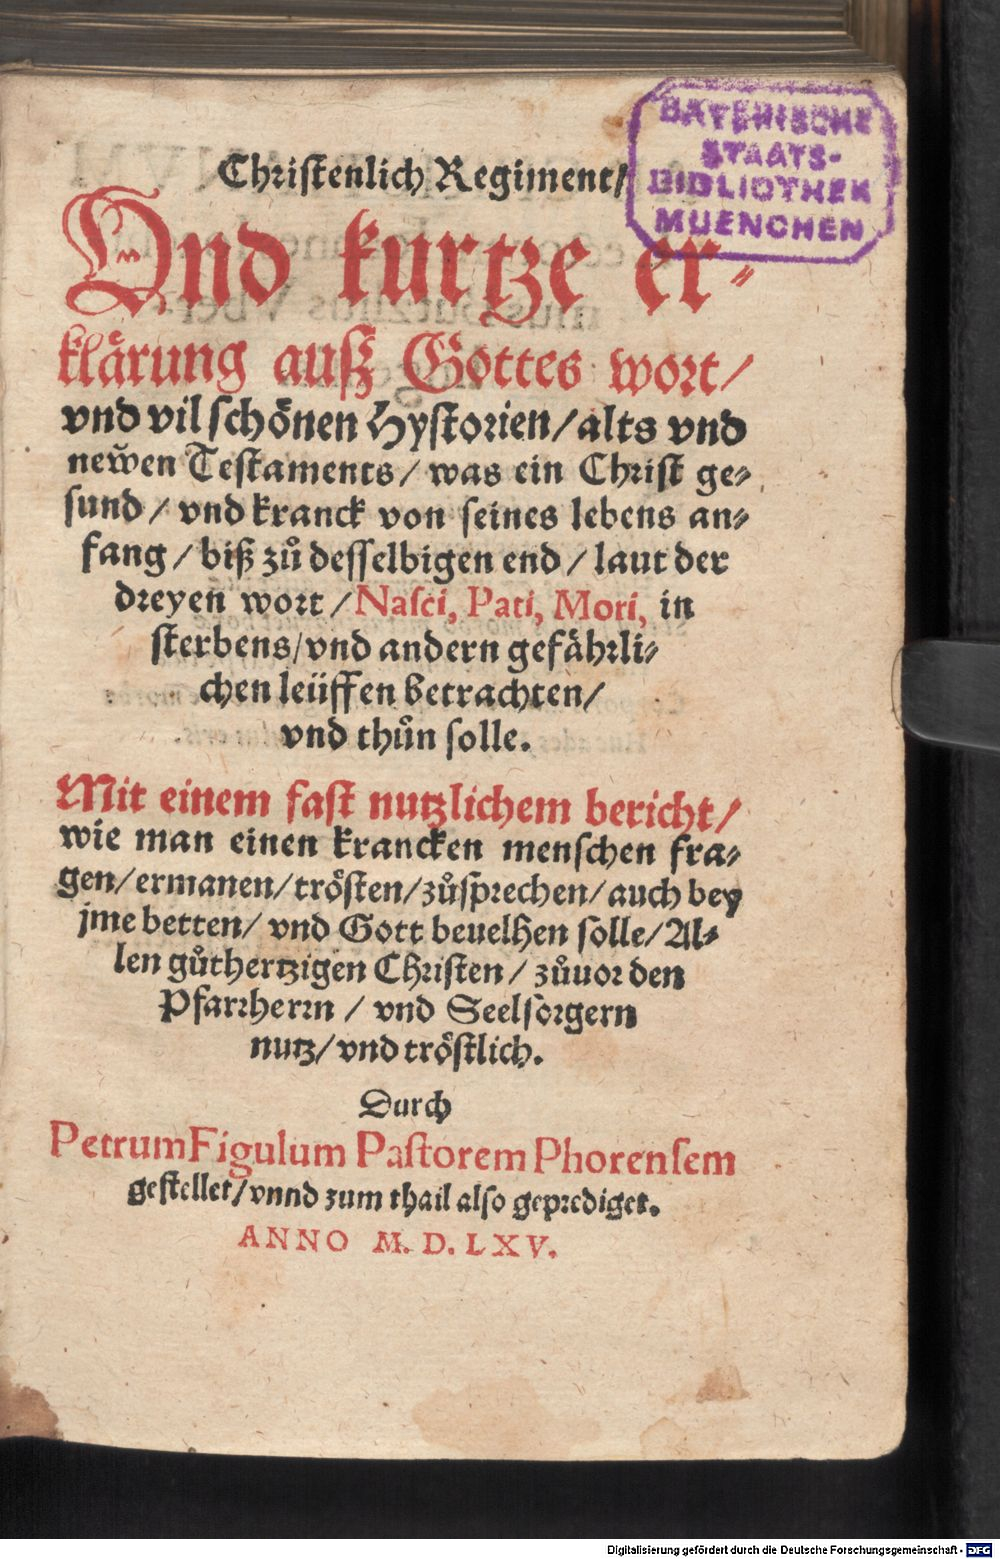 Christenlich Regiment/
Vnd kurtze er⸗
klårung auſʒ Gottes wort/
vnd vil ſchönen Hyſtorien/alts vnd
newen Teſtaments/ was ein Chriſt ge⸗
ſund/ vnd kranck von ſeines lebens an⸗
fang/biß zů deſſelbigen end/laut der
dreyen wort/Naſci, Pati, Mori, in
ſterbens/vnd andern gefährli⸗
chen leüffen betrachten/
vnd thůn ſolle.
Mit einem faſt nutzlichem bericht/
wie man einen krancken menſchen fra⸗
gen/ermanen/tröſten/zůſprechen/auch bey
jme betten/ vnd Gott beuelhen ſolle/Al⸗
len gůthertzigen Chriſten/ zůuor den
Pfarrherrn/ vnd Seelſorgern
nutz/vnd tröſtlich.
Durch
Petrum Figulum Paſtorem Phorenſem
geſtellet/vnnd zum thail alſo geprediget.
ANNO M. D. LXV.
BAYERISCHE
STAATS-
BIBLIOTHEK
MUENCHEN
Digitalisierung gefördert durch die Deutsche Forschungsgemeinschaft - DFG